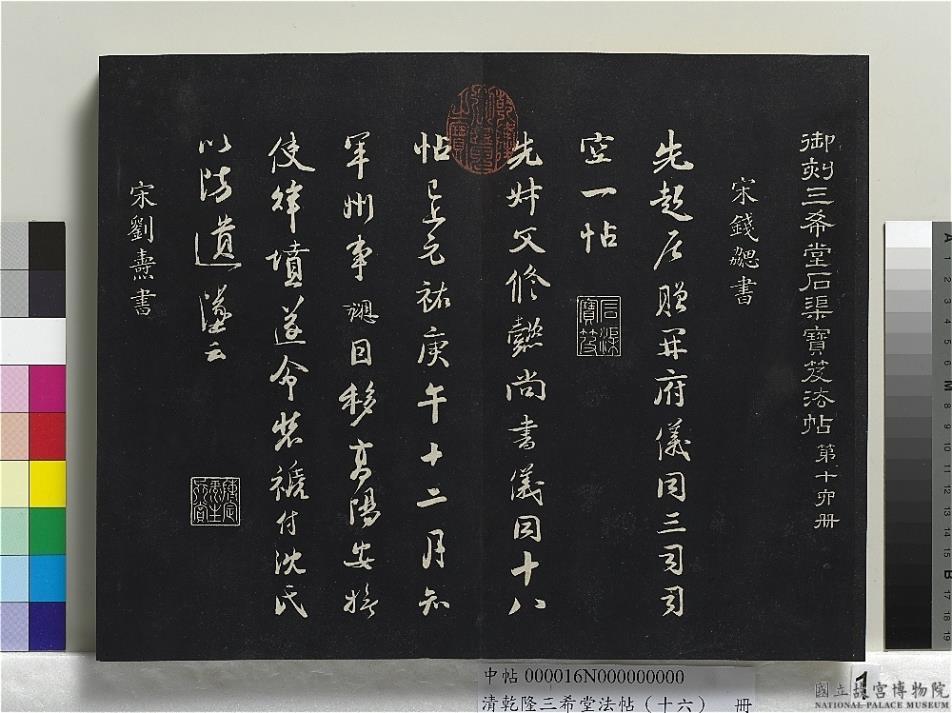 御刻三希堂石渠寶笈法帖 第十六冊
宋錢勰書
先起居贈開府儀同三司司
空一帖
石渠寶笈
先叔父修懿尚書儀同十八
帖 元祐庚午十二月知
軍州事勰因移高陽安撫
使拜墳遂令裝褫付沈氏
以防遺墜云
宋劉燾書
中帖000016N000000000
清乾隆三希堂法帖（十六） 冊
1
國立故宮博物院
NATIONAL PALACE MUSEUM